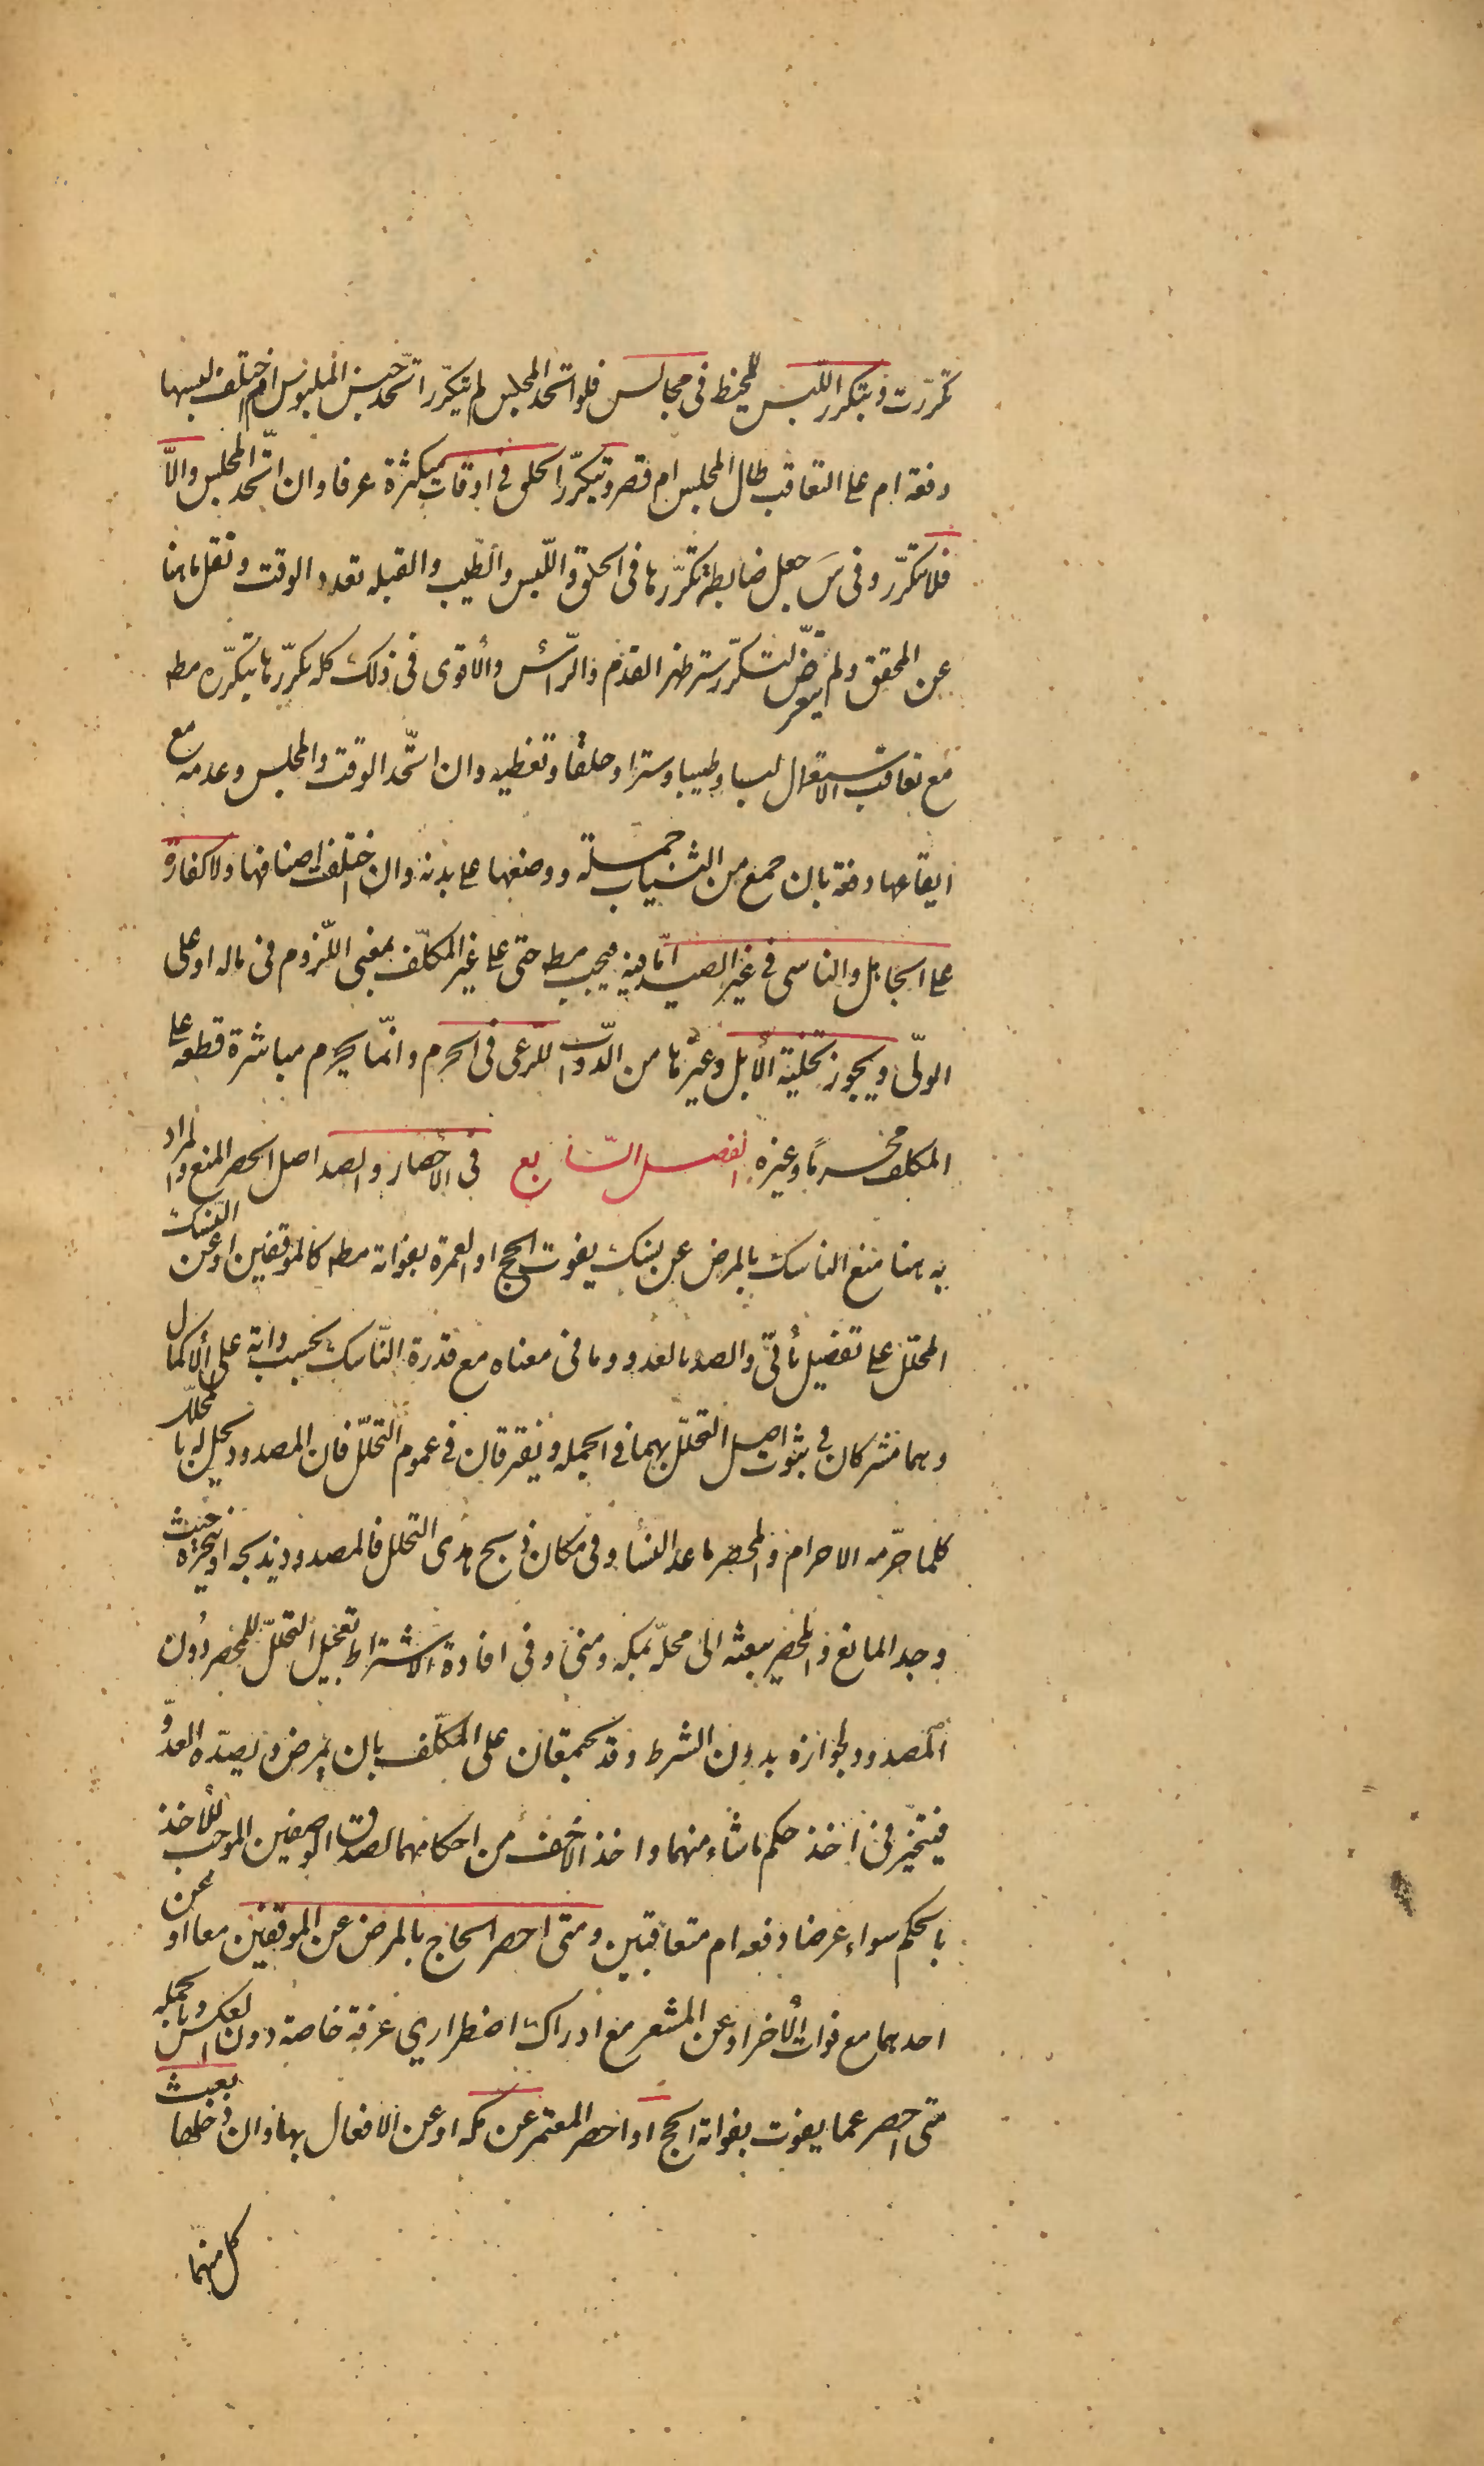 تكررت و يتكرر اللبس للمخيط فى مجالس فلو اتحد المجلس لم يتكرر اتحد جنس الملبوس ام اختلف لبسها
دفعة ام على التعاقب طال المجلس ام قصر و يتكرر الحلق فى اوقات متكثرة عرفا و ان اتحد المجلس و الا
فلا يتكرر و فى س جعل ضابطة تكررها فى الحلق و اللبس و الطيب و القبله تعدد الوقت و نقل ما هنا
عن المحقق و لم يتعرض لتكرر ستر ظهر القدم و الرأس و الأقوى فى ذلك كله تكررها بتكرره مطه
مع تعاقب الاستعمال لبسا و طيبا و سترا و حلقا و تغطيه و ان اتحد الوقت و المجلس و عدمه مع
ايقاعها دفعة بان جمع من الثياب جملة و وضعها على بدنه و ان اختلف اصنافها و لا كفارة
على الجاهل و الناسى فى غير الصيد اما فيه فيجب مطه حتى على غير المكلف بمعنى اللزوم فى ماله او على
الولى و يجوز تخلية الأبل و غيرها من الدواب للرعى فى الحرم و انما يحرم مباشرة قطعه على
المكلف محرما و غيره الفصل السابع فى الأحصار و الصد اصل الحصر المنع و المراد
به هنا منع الناسك بالمرض عن نسك يفوت الحج او العمرة بفواته مطه كالموقفين او عن النسك
المحلل على تفصيل يأتى و الصد بالعدو و ما فى معناه مع قدرة الناسك بحسب ذاته على الأكمال
و هما مشتركان فى ثبوت اصل التحلل بهما فى الجمله و يفترقان فى عموم التحلل فان المصدود يحل له بالمحلل
كلما حرمه الاحرام و المحصر ما عدا النسأ و فى مكان ذبح هدى التحلل فالمصدود يذبحه او ينحره حيث
وجد المانع و المحصر يبعثه الى محله بمكه و منى و فى افادة الاشتراط تعجيل التحلل للمحصر دون
المصدود لجوازه بدون الشرط و قد يجتمعان على المكلف بان يمرض و يصده العدو
فيتخير فى اخذ حكم ما شاء منهما و اخذ الاخف من احكامهما لصدق الوصفين الموجب للأخذ
بالحكم سواء عرضا دفعه ام متعاقبين و متى احصر الحاج بالمرض عن الموقفين معا او عن
احدهما مع فوات الأخر او عن المشعر مع ادراك اضطراري عرفة خاصة دون العكس و بالجمله
متى احصر عما يفوت بفواته الحج او احصر المعتمر عن مكه او عن الافعال بها و ان دخلها بعث
كل منهما